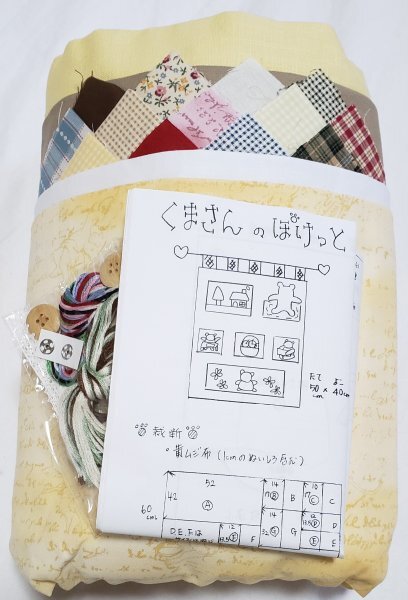 くまさんのぽけっと
たて よこ
50 × 40
cm cm
裁断
・黄ムジ布(1cmのぬいしろ含む)
52
14
10
42
A
B
B
C
C
60
cm
14
12
D
D
12
F
F
G
G
E
E
D.E.Fは